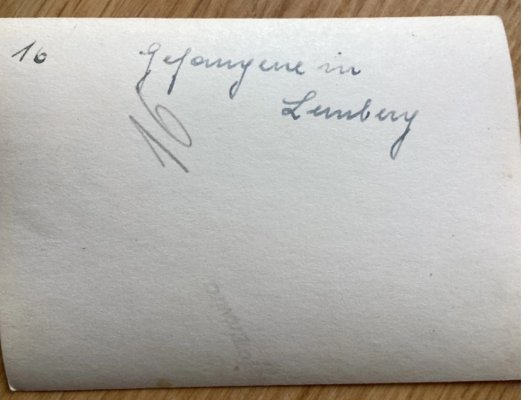 16
Gefangene in
Lemberg
16